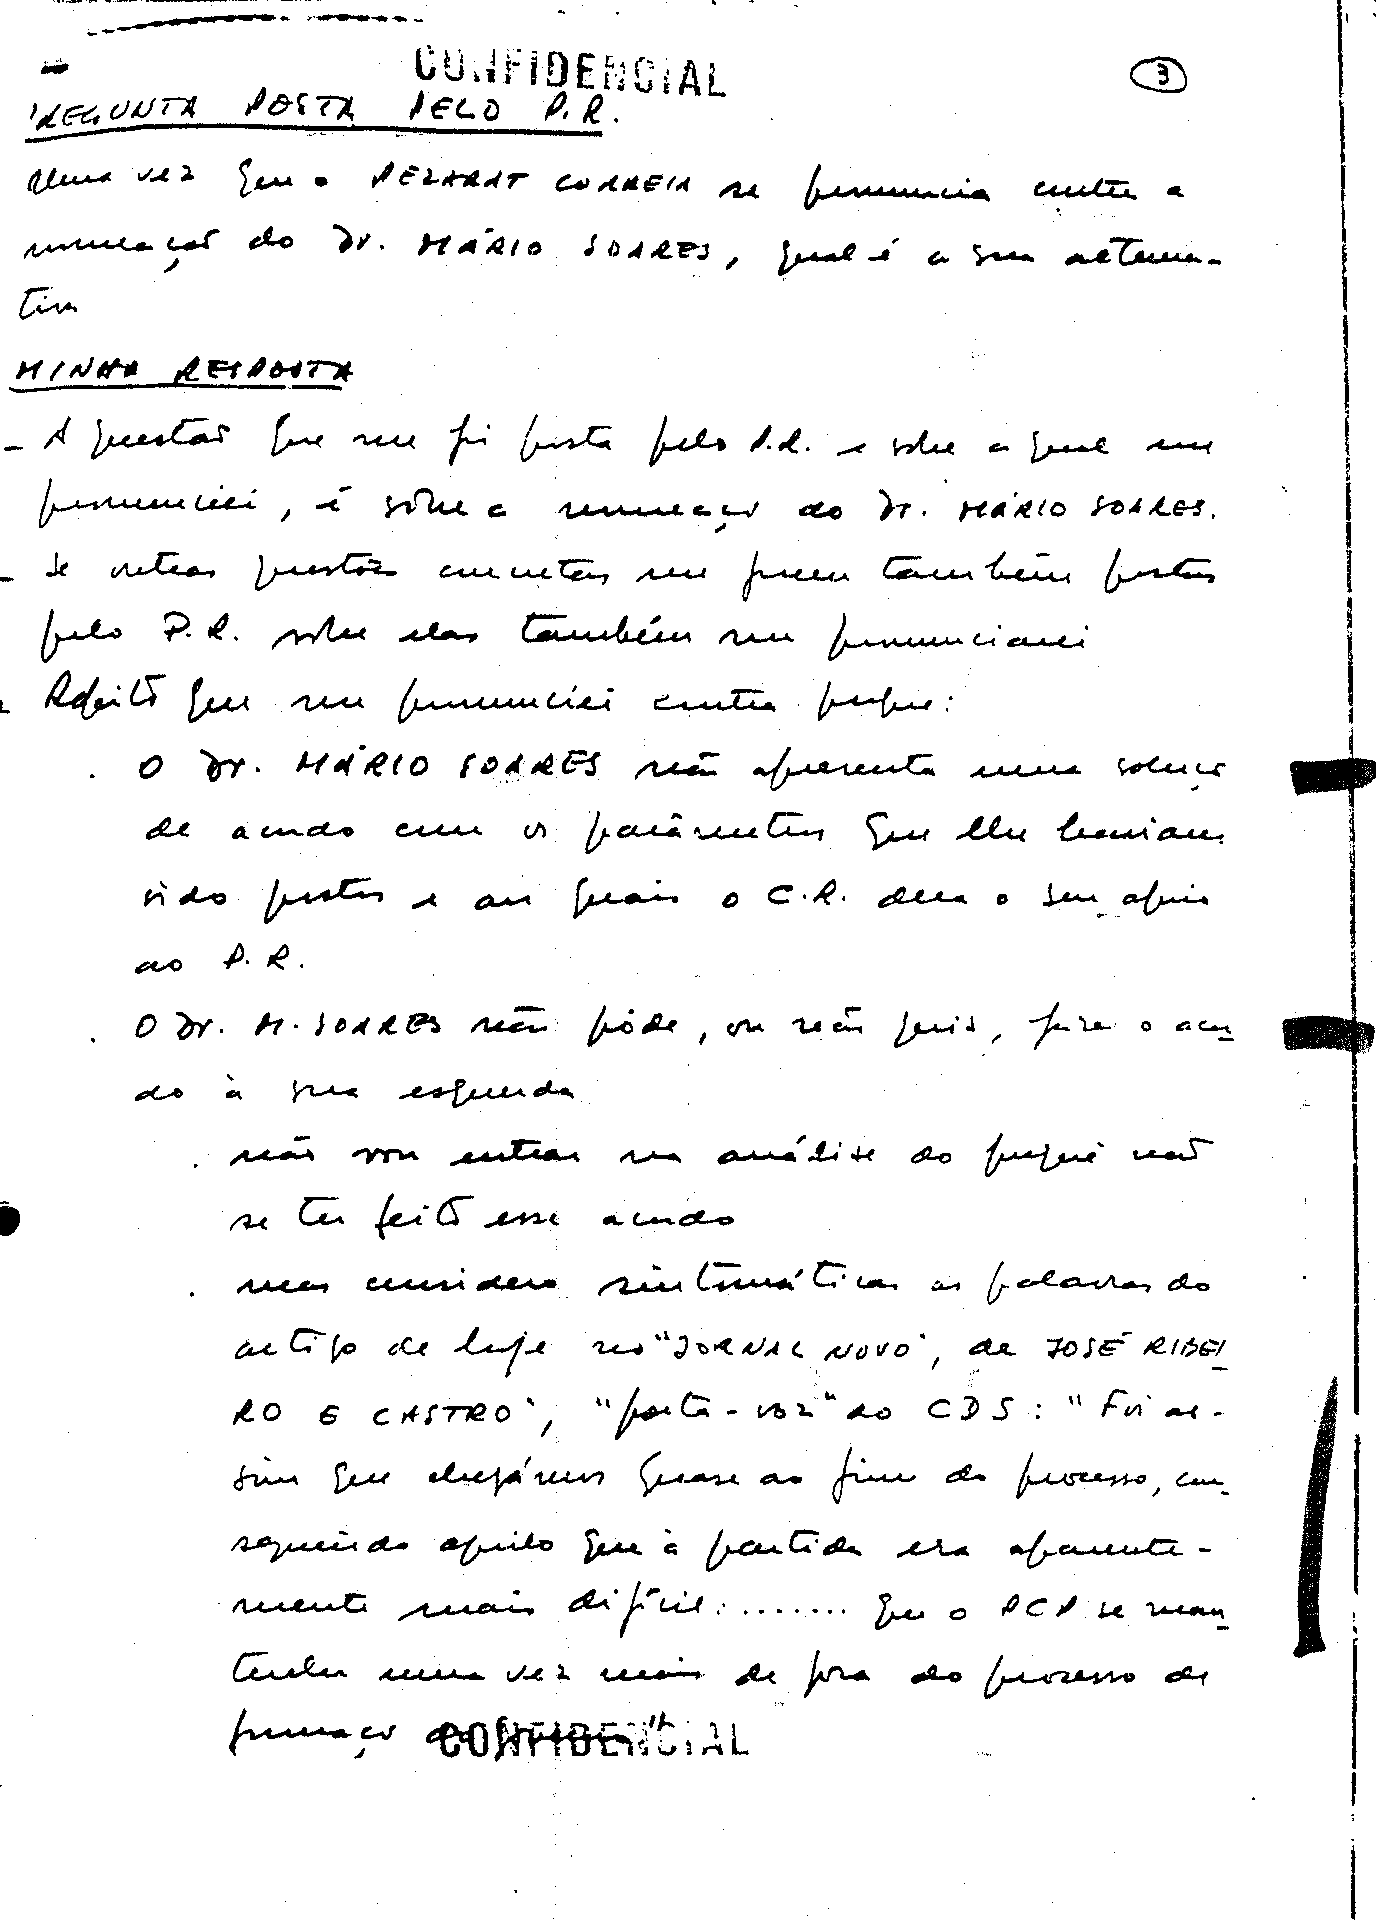 CONFIDENCIAL
3
PREGUNTA POSTA PELO P.R.
Uma vez que o PEZARAT CORREIA se pronuncia contra a
nomeação do Dr. MÁRIO SOARES, qual é a sua alterna-
tiva
MINHA RESPOSTA
- A questão que me foi posta pelo P.R. e sobre a qual me
pronunciei, é sobre a nomeação do Dr. MÁRIO SOARES.
- Se outras questões concretas me forem também postas
pelo P.R. sobre elas também me pronunciarei
- Repito que me pronunciei contra porque:
. O Dr. MÁRIO SOARES não apresenta uma solução
de acordo com os parâmetros que lhe haviam
sido postos e aos quais o C.R. dera o seu apoio
ao P.R.
. O Dr. M. SOARES não pôde, ou não quis, fazer o acor-
do à sua esquerda
. não vou entrar na análise do porquê não
se ter feito esse acordo
. mas considero sintomáticas as palavras do
artigo de hoje no "JORNAL NOVO", de JOSÉ RIBEI-
RO E CASTRO, "porta-voz" do CDS: "Foi as-
sim que chegámos quase ao fim do processo, con-
seguindo aquilo que à partida era aparente-
mente mais difícil: ....... que o PCP se man-
tenha uma vez mais de fora do processo de
formação do governo"
CONFIDENCIAL